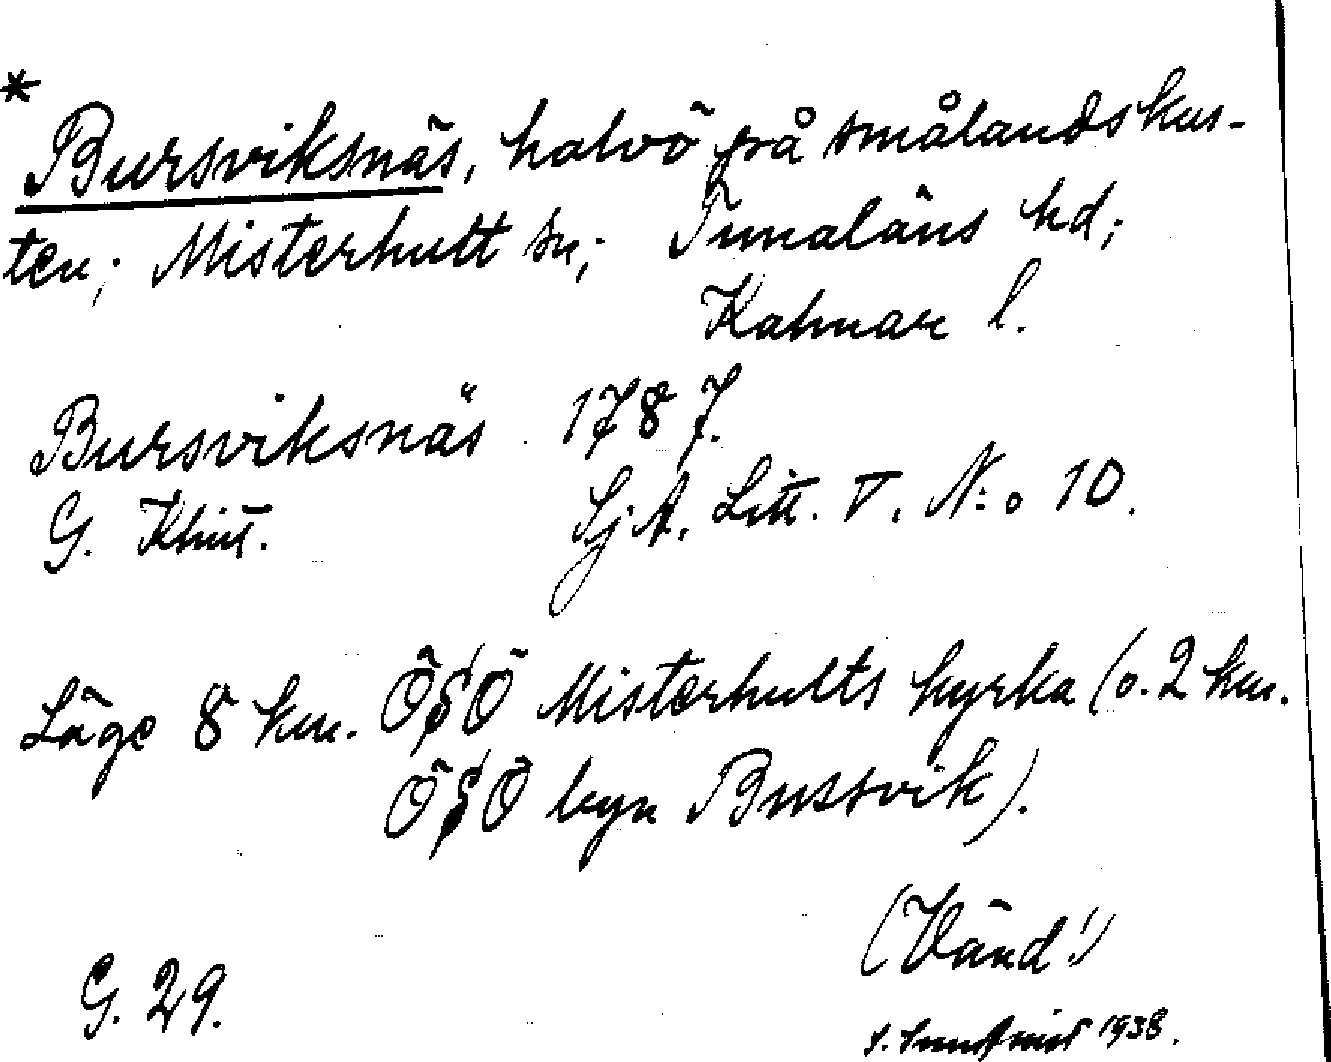 * Bursviksnäs, halvö på smålandskus-
ten; Misterhult sn; Tunaläns hd;
Kalmar l.
Bursviksnäs 1787.
G. Klint. Sj.A. Litt. V. N:o 10.
Läge 8 km. ÖSÖ Misterhults kyrka (o. 2 km.
ÖSÖ byn Bussvik).
(Vänd!)
G. 29.
1938.